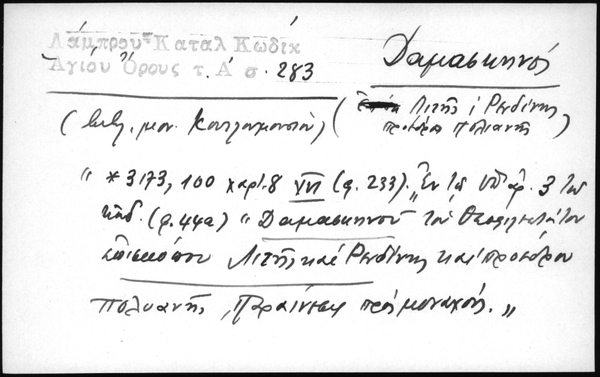 Λάμπρου Καταλ Κωδίκ
Αγίου Όρους τ. Α σ. 283
Δαμασκηνός
(βιβλ. μον. Κουτλουμουσίου)
(Λιτῆς & Ρενδίνης
πρόεδρος Πολιανῆς)
" * 3173, 100 χαρτ. 8 XVI (φ. 233). "Ἐν τῷ ὑπ' ἀρ. 3 τοῦ
κώδ. (φ. 44α) "Δαμασκηνοῦ τοῦ Θεοφιλεστάτου
ἐπισκόπου Λιτῆς καὶ Ρενδίνης καὶ προέδρου
Πολυανῆς, Παραίνεσις πρὸς μοναχούς."